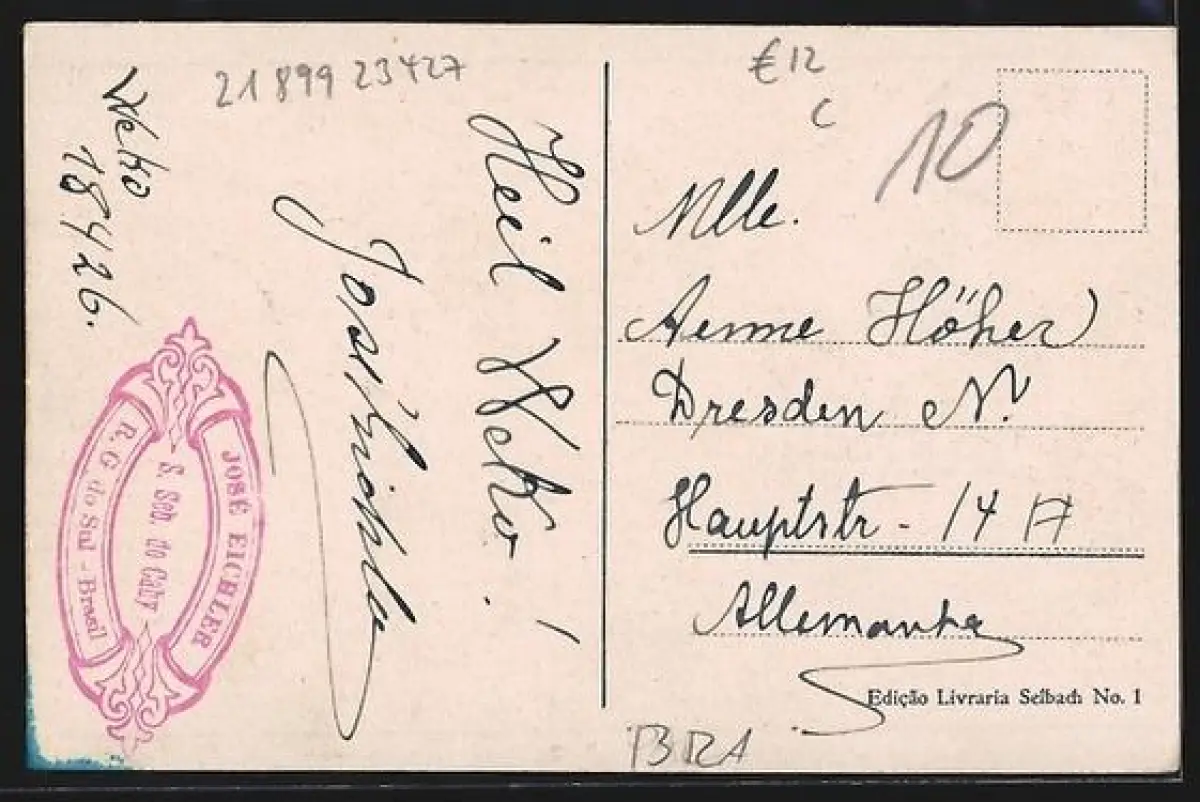 21899 23427
€12
C
10
Weko
18426.
Heil Weko!
José Eichler
JOSÉ EICHLER
S. Seb. do Cahy
R. G. do Sul - Brasil
Mlle.
Aenne Höher
Dresden N.
Hauptstr - 14
Allemanha
Edição Livraria Selbach No. 1
BRA